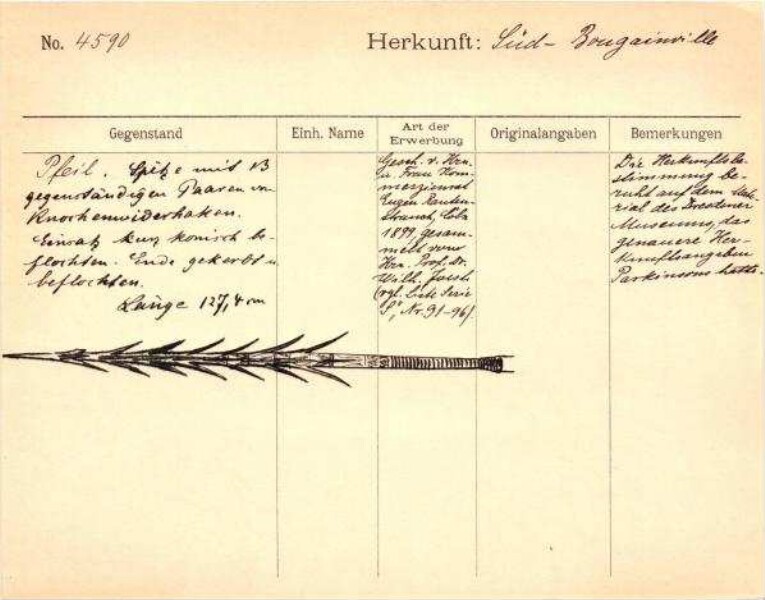 No. 4590
Herkunft: Süd-Bougainville
Gegenstand
Einh. Name
Art der
Erwerbung
Originalangaben
Bemerkungen
Pfeil. Spitze mit 13
gegenständigen Paaren von
Knochenwiderhaken.
Einsatz kurz konisch be-
flochten. Ende gekerbt u
beflochten.
Länge 127,4 cm
Gesch. v. Hrn.
u. Frau Kom-
merzienrat
Eugen Rauten-
strauch, Cöln
1899, gesam-
melt von
Hrn. Prof. Dr.
Wilh. Joest
(vgl. Serie
Nr. 91-96).
Die Herkunftsbe-
stimmung be-
ruht auf dem Mate-
rial des Dresdener
Museums, das
genauere Her-
kunftsangaben
Parkinsons hatte.